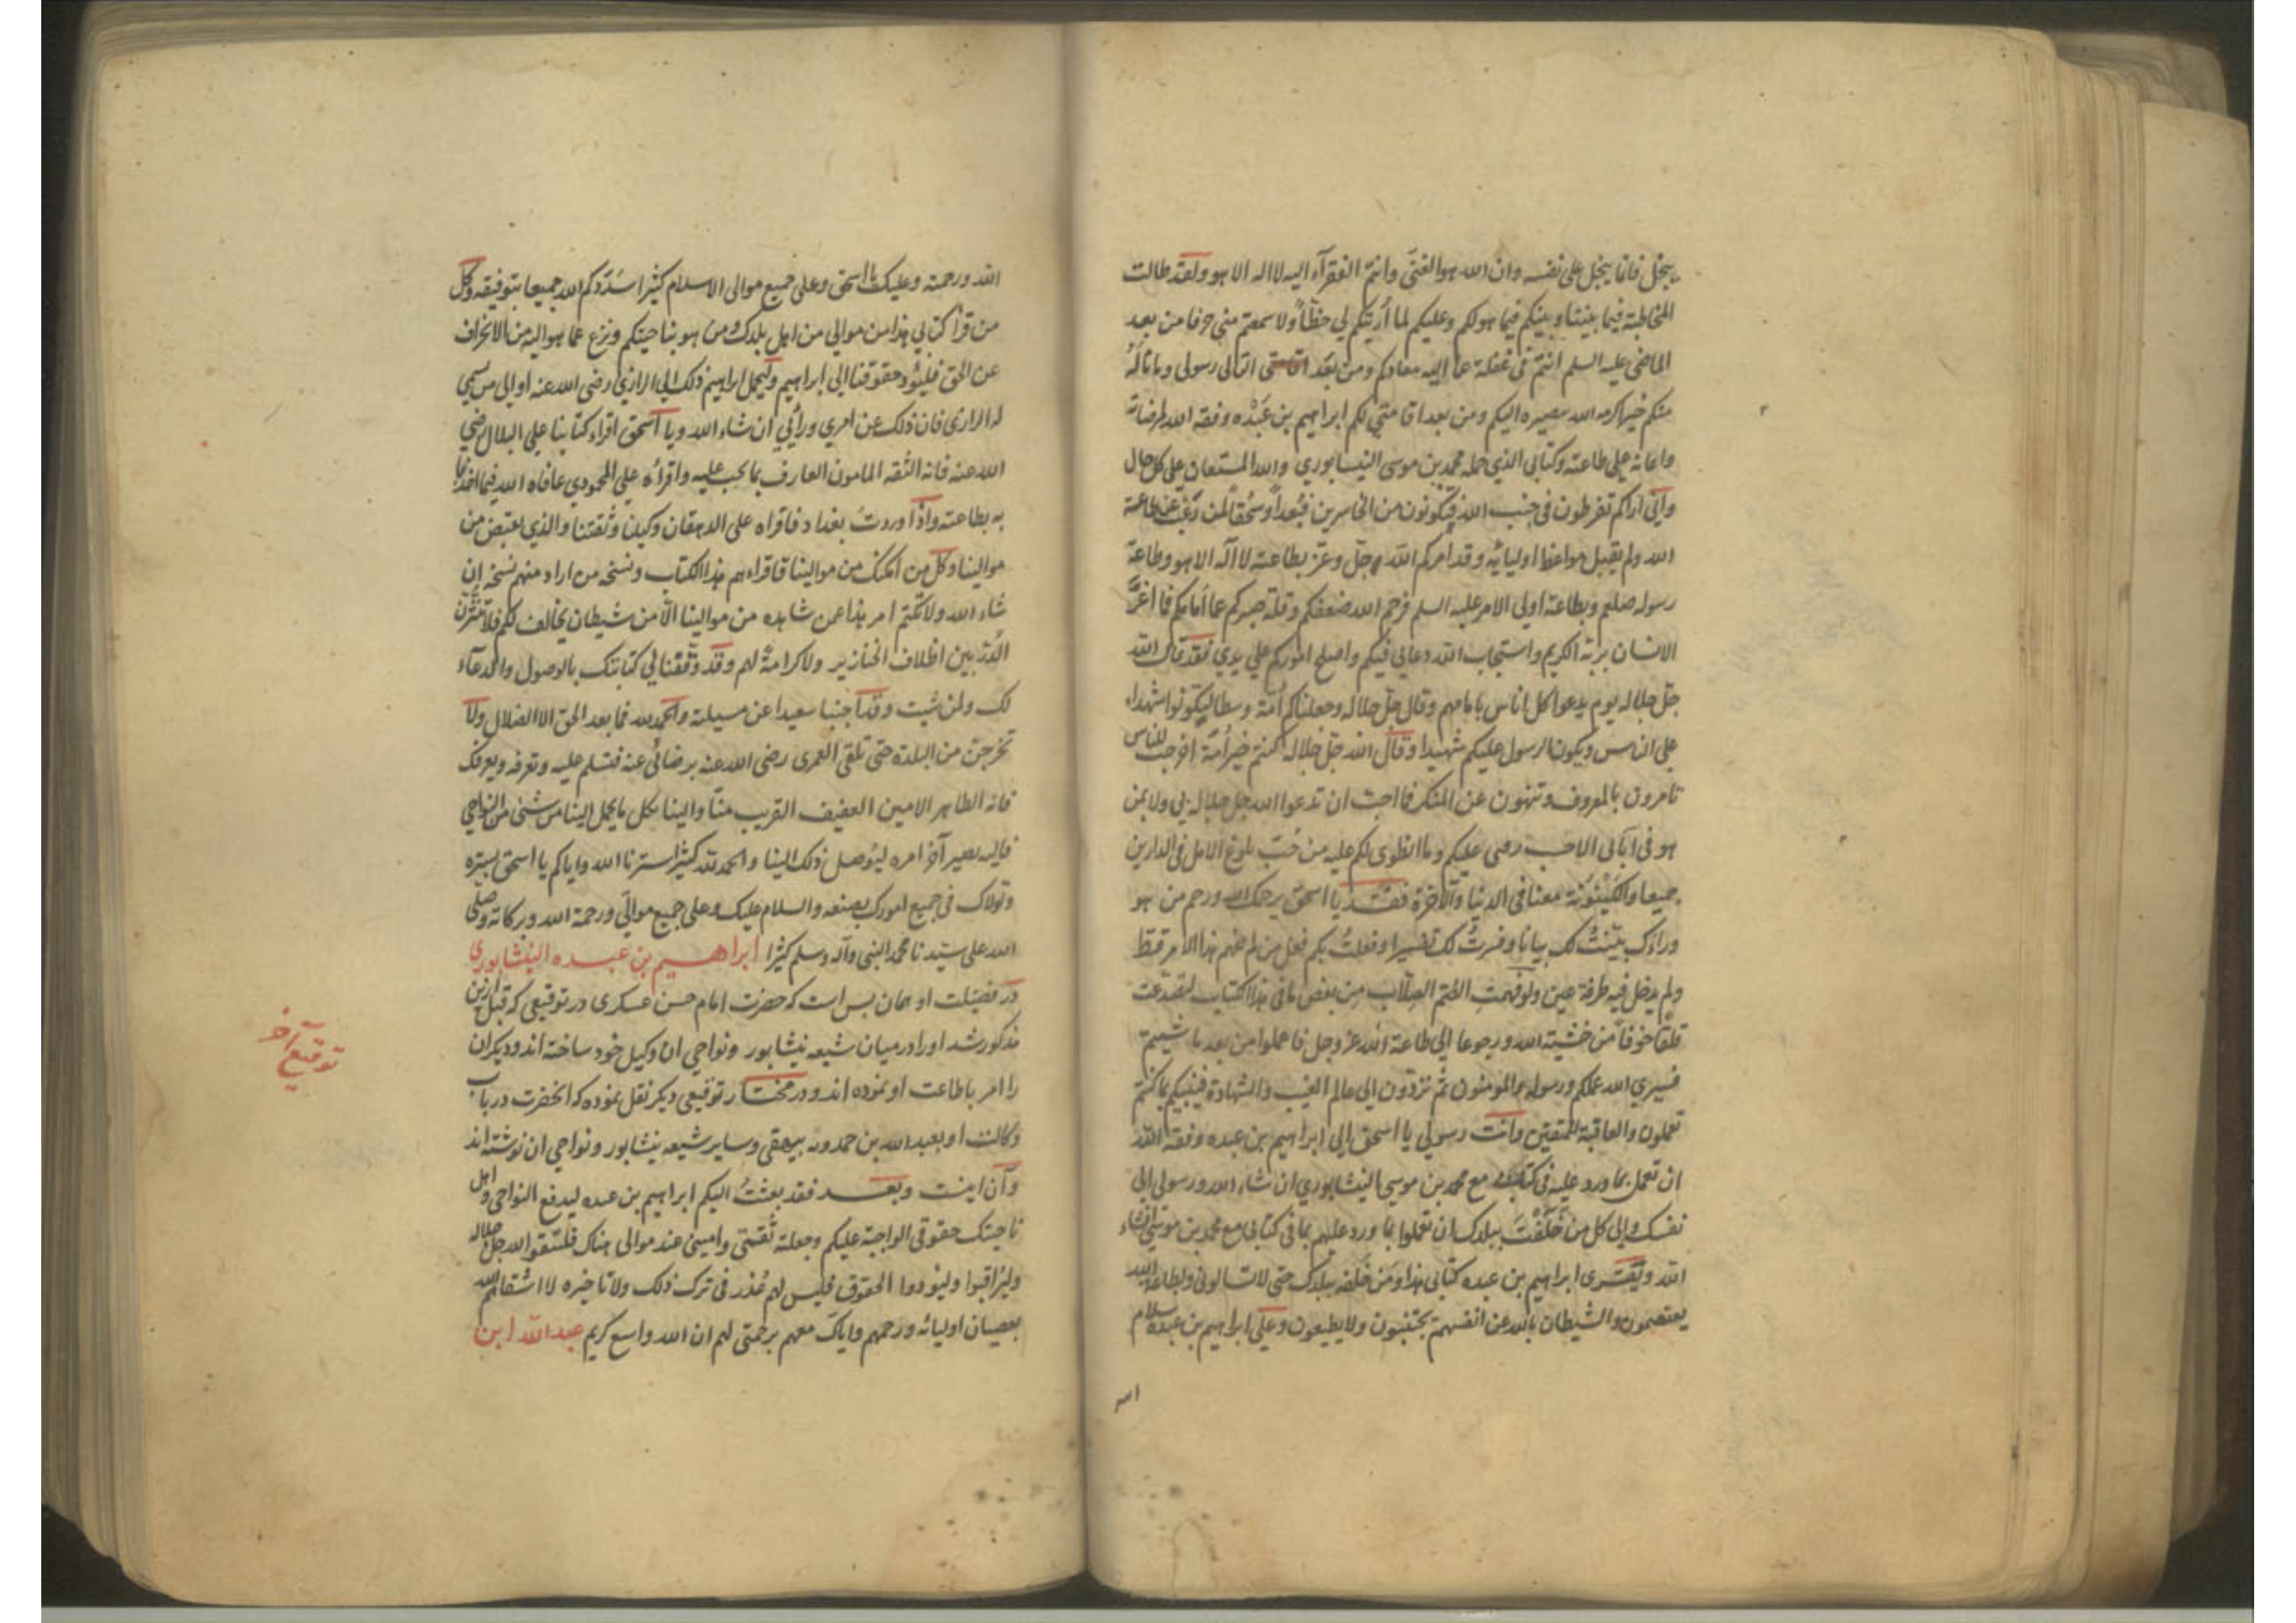 يبخل فانما يبخل على نفسه وان الله هو الغنى وانتم الفقرآء اليه لا اله الا هو ولقد طالت
المخاطبة فيما بيننا وبينكم فيما هو لكم وعليكم لما أريتكم لي خطّاً ولا سمعتم منى حرفا من بعد
الماضى عليه السلم انتم فى غفلة عما اليه معادكم ومن بعد اتالى رسولى وما ناله
منكم حين اكرمه الله بمصيره اليكم ومن بعد اقامتي لكم ابراهيم بن عَبْدَه وفقه الله لمرضاته
واعانه على طاعته وكتابى الذي حمله محمد بن موسى النيسابوري والله المستعان على كل حال
وانّى اراكم تفرطون فى جنب الله فتكونون من الخاسرين فبُعداً وسُحْقاً لمن رَغِبَ عن طاعة
الله ولم يقبل مواعظ اوليائه وقد امركم الله جلّ وعزّ بطاعته لا اله الا هو وطاعة
رسوله صلعم وبطاعة اولى الامر عليه السلم فرحم الله ضعفكم وقلة صبركم عما أمامكم فما اغرّ
الانسان بربّه الكريم واستجاب الله دعايى فيكم واصلح اموركم على يدي فقد قال الله
جلّ جلاله يوم يدعوا كل اناس بامامهم وقال جلّ جلاله وجعلناكم أمّة وسطا ليكونوا شهداء
على الناس ويكون الرسول عليكم شهيدا وقال الله جلّ جلاله كنتم خير أمّة اخرجت للناس
تامرون بالمعروف وتنهون عن المنكر فما احب ان تدعوا الله جل جلاله بى ولا بمن
هو فى آبآئى الا حسب رضى عليكم وما انطوى لكم عليه من حُبّ بلوغ الامل فى الدارين
جميعا والكَيْنُونَة معنا فى الدنيا والآخرة فقد يا اسحق يرحمك الله ورحم من هو
وراءك بيّنتُ لك بيانا وفسّرتُ لك تفسيرا وفعلتُ بكم فعل من لم يفهم هذا الامر قط
ولم يدخل فيه طرفة عين ولو فهمت الصُّم الصِلَاب من بعض ما فى هذا الكتاب لتصدّعت
قلقا خوفاً من خشية الله ورجوعا الى طاعة الله عز وجل فاعملوا من بعد ما شيتم
فسيري الله عملكم ورسوله والمومنون ثم تردّون الى عالم الغيب والشهادة فينبّيكم بما كنتم
تعملون والعاقبة للمتقين وانت رسولى يا اسحق الى ابراهيم بن عبده وفقه الله
ان تعمل بما ورد عليه فى كتابي مع محمد بن موسى النيشابوري ان شاء الله ورسولى الى
نفسك والى كل من خَلَّفْتَ ببلدك ان تعملوا بما ورد عليهم بما فى كتابى مع محمد بن موسى ان شاء
الله ويقرى ابراهيم بن عبده كتابى هذا ومن خلفه ببلدك حتى لا تسالونى وبطاعة الله
يعتصمون والشيطان بالله عن انفسهم يجتنبون ولا يطيعون وعلى ابراهيم بن عبده سلام
الله
الله ورحمته وعليك يا اسحق وعلى جميع موالى الاسلام كثيرا سَدّدكم الله جميعا بتوفيقه وكل
من قرأ كتابي هذا من موالي من اهل بلدك ومن هو بناحيتكم ونزع عما هو اليه من الانحراف
عن الحق فليؤد حقوقنا الى ابراهيم وليحمل ابراهيم ذلك الى الرازي رضى الله عنه او الى من سمي
له الرازى فان ذلك عن امري ورأيي ان شاء الله ويا اسحق اقراء كتابنا على البلالى رضي
الله عنه فانه الثقه المامون العارف بما يجب عليه واقرأه على المحمودي عافاه الله فما احمدنا
به بطاعته واذا وردتَ بغداد فاقراه على الدهقان وكيلنا وثقتنا والذي يقبض من
موالينا وكل من امكنك من موالينا فاقراءهم هذا الكتاب ونسخه من اراد منهم نسخة ان
شاء الله ولا تكتم امر هذا عمن شاهده من موالينا الّا من شيطان يخالف لكم فلا تنثرنّ
الدّر بين اظلاف الخنازير ولا كرامةً لهم وقد وقّعنا في كتابتك بالوصول والدعآء
لك ولمن شيت وقد اجبنا سعيدا عن مسيلته والحمد لله فما بعد الحق الا الضلال ولا
تخرجنّ من البلدة حتى تلقى العمرى رضى الله عنه برضائى عنه فتسلم عليه وتعرفه ويعرفك
فانه الطاهر الامين العفيف القريب منّا والينا فكل ما يحمل الينا من شئ من النواحي
فاليه يصير آخر امره ليوصل ذلك الينا والحمد لله كثيرا سترنا الله واياكم يا اسحق بستره
وتولاك فى جميع امورك بصنعه والسلام عليك وعلى جميع مواليّ ورحمة الله وبركاته وصلى
الله على سيّدنا محمد النبى وآله وسلم كثيرا ابراهيم بن عبده النيشابورى
در فضيلت او همان بس است كه حضرت امام حسن عسكرى در توقيعى كه قبل ازين
مذكور شد او را در ميان شيعه نيشابور ونواحى آن وكيل خود ساخته اند وديكران
را امر باطاعت او نموده اند ودر مختار توقيعى ديكر نقل نموده كه انحضرت در باب
وكالت او بعبد الله بن حمدويه بيهقى وساير شيعه نيشابور ونواحى ان نوشته اند
وآن اينست وبعد فقد بعثتُ اليكم ابراهيم بن عبده ليدفع النواحى واهل
ناحيتك حقوقى الواجبة عليكم وجعلته ثقتى وامينى عند موالى هناك فلتتقوا الله جل جلاله
وليراقبوا وليؤدوا الحقوق فليس لهم عُذر فى ترك ذلك ولا تاخيره لا اشقاهم الله
بعصيان اوليائه ورحمهم واياك معهم برحمتى لهم ان الله واسع كريم عبد الله ابن
توقيع آخر